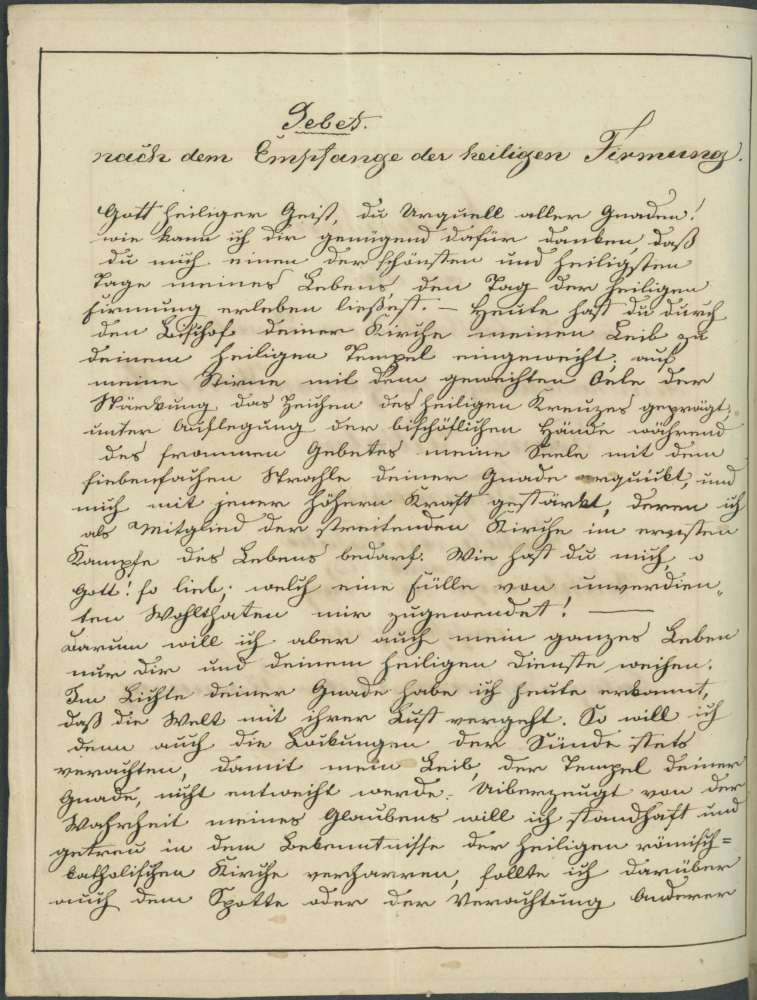 Gebet.
nach dem Empfange der heiligen Firmung.
Gott heiliger Geist, du Urquell aller Gnaden!
wie kann ich dir genügend dafür danken, daß
du mich einen der schönsten und heiligsten
Tage meines Lebens den Tag der heiligen
Firmung erleben ließest. – Heute hast du durch
den Bischof deiner Kirche meinen Leib zu
deinem heiligen Tempel eingeweiht; auf
meine Stirne mit dem geweihten Oele der
Stärkung das Zeichen des heiligen Kreuzes geprägt,
unter Auflegung der bischöflichen Hände während
des frommen Gebetes meine Seele mit dem
siebenfachen Strahle deiner Gnade erquickt, und
mich mit jener höhern Kraft gestärkt, deren ich
als Mitglied der streitenden Kirche im ernsten
Kampfe des Lebens bedarf. Wie hast du mich, o
Gott! so lieb; welch eine Fülle von unverdien„
ten Wohlthaten mir zugewendet! —
Darum will ich aber auch mein ganzes Leben
nur Dir und deinem heiligen Dienste weihen.
Im Lichte deiner Gnade habe ich heute erkannt,
daß die Welt mit ihrer Lust vergeht. So will ich
denn auch die Lockungen der Sünde stets
verachten, damit mein Leib, der Tempel deiner
Gnade, nicht entweiht werde. Uiberzeugt von der
Wahrheit meines Glaubens will ich standhaft und
getreu in dem Bekenntnisse der heiligen römisch=
katholischen Kirche verharren, sollte ich darüber
auch dem Spotte oder der Verachtung Anderer